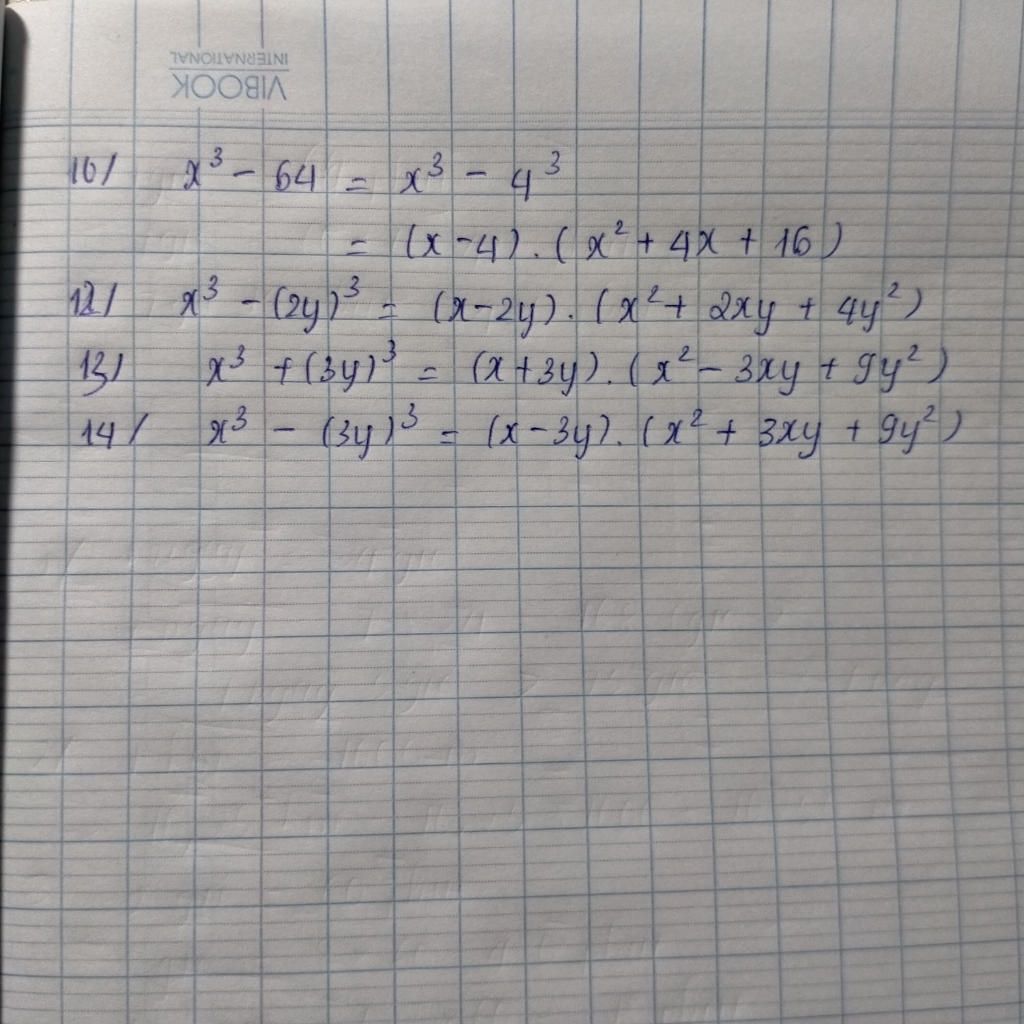 VIBOOK
INTERNATIONAL
10/ x³ - 64 = x³ - 4³
= (x-4).(x² + 4x + 16)
12/ x³ - (2y)³ = (x-2y).(x² + 2xy + 4y²)
13/ x³ + (3y)³ = (x+3y).(x² - 3xy + 9y²)
14/ x³ - (3y)³ = (x-3y).(x² + 3xy + 9y²)